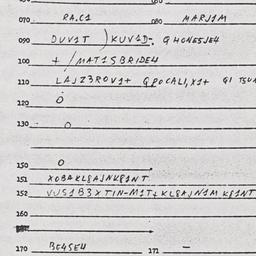 070 RA.C1 080 MARJ1M
090 DUV1T )KUV1D-. GHONESJE4
100 + /MAT1SBRIDE4
110 LAJZ3ROV1+ GPOCALI,X1+ GI
120 O
130 O
150 O
151 XOBAKL8AJNK81NT
152 VUS1B3XTIN-M1T+KL8AJN1M K81NT
160
170 BE4SE4 171 -